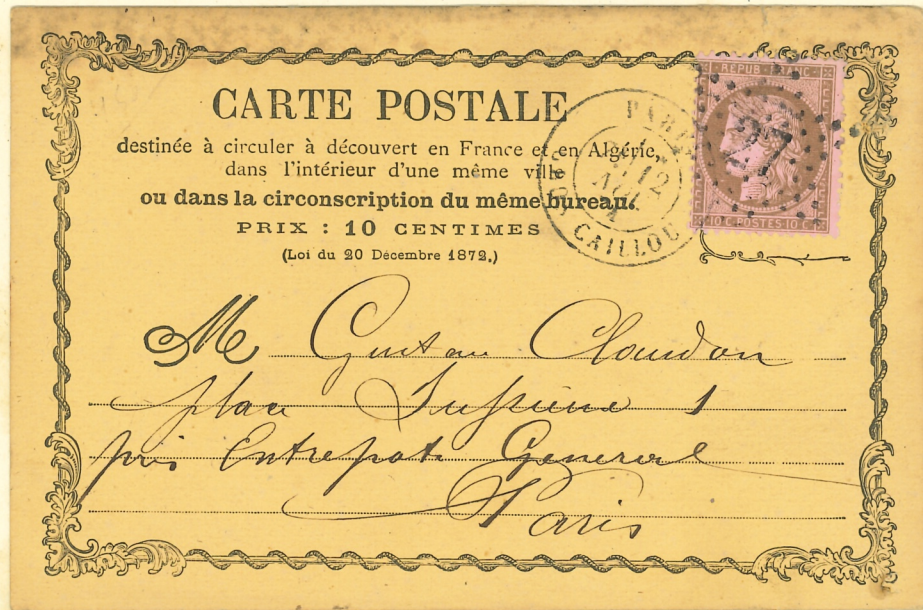 CARTE POSTALE
destinée à circuler à découvert en France et en Algérie,
dans l'intérieur d'une même ville
ou dans la circonscription du même bureau.
PRIX : 10 CENTIMES
(Loi du 20 Décembre 1872.)
REPUB FRANC
10 C POSTES 10 C
27
PARIS
12
CAILLOU
M Gustave Claudon
place 1
près Entrepot General
Paris